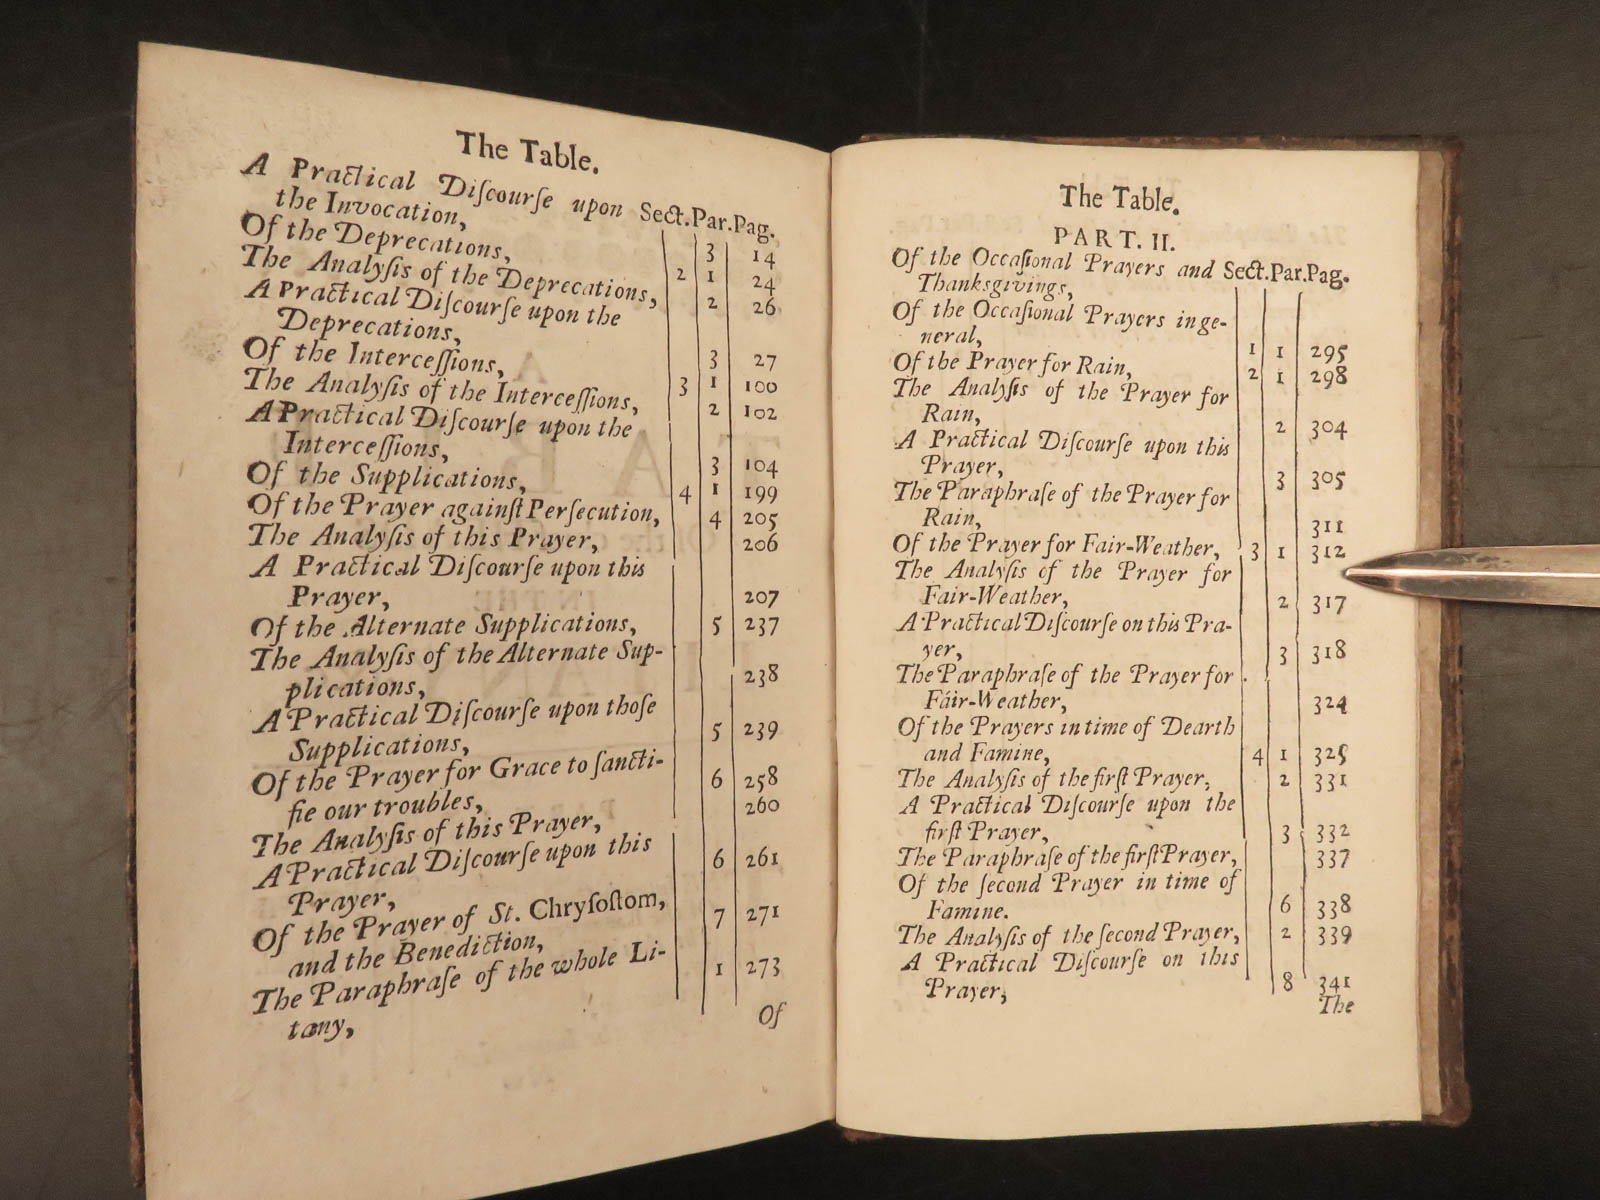 The Table.
A Practical Discourse upon Sect.Par.Pag.
the Invocation, 3 14
Of the Deprecations, 2 1 24
The Analysis of the Deprecations, 2 26
A Practical Discourse upon the
Deprecations, 3 27
Of the Intercessions, 3 1 100
The Analysis of the Intercessions, 2 102
A Practical Discourse upon the
Intercessions, 3 104
Of the Supplications, 4 1 199
Of the Prayer against Persecution, 4 205
The Analysis of this Prayer, 206
A Practical Discourse upon this
Prayer, 207
Of the Alternate Supplications, 5 237
The Analysis of the Alternate Sup-
plications, 238
A Practical Discourse upon those
Supplications, 5 239
Of the Prayer for Grace to sancti-
fie our troubles, 6 258
The Analysis of this Prayer, 260
A Practical Discourse upon this
Prayer, 6 261
Of the Prayer of St. Chrysostom,
and the Benediction, 7 271
The Paraphrase of the whole Li-
tany, 1 273
Of
The Table.
PART. II.
Of the Occasional Prayers and Sect.Par.Pag.
Thanksgivings,
Of the Occasional Prayers in ge-
neral, 1 1 295
Of the Prayer for Rain, 2 1 298
The Analysis of the Prayer for
Rain, 2 304
A Practical Discourse upon this
Prayer, 3 305
The Paraphrase of the Prayer for
Rain, 311
Of the Prayer for Fair-Weather, 3 1 312
The Analysis of the Prayer for
Fair-Weather, 2 317
A Practical Discourse on this Pra-
yer, 3 318
The Paraphrase of the Prayer for
Fair-Weather, 324
Of the Prayers in time of Dearth
and Famine, 4 1 325
The Analysis of the first Prayer, 2 331
A Practical Discourse upon the
first Prayer, 3 332
The Paraphrase of the first Prayer, 337
Of the second Prayer in time of
Famine. 6 338
The Analysis of the second Prayer, 2 339
A Practical Discourse on this
Prayer, 8 341
The